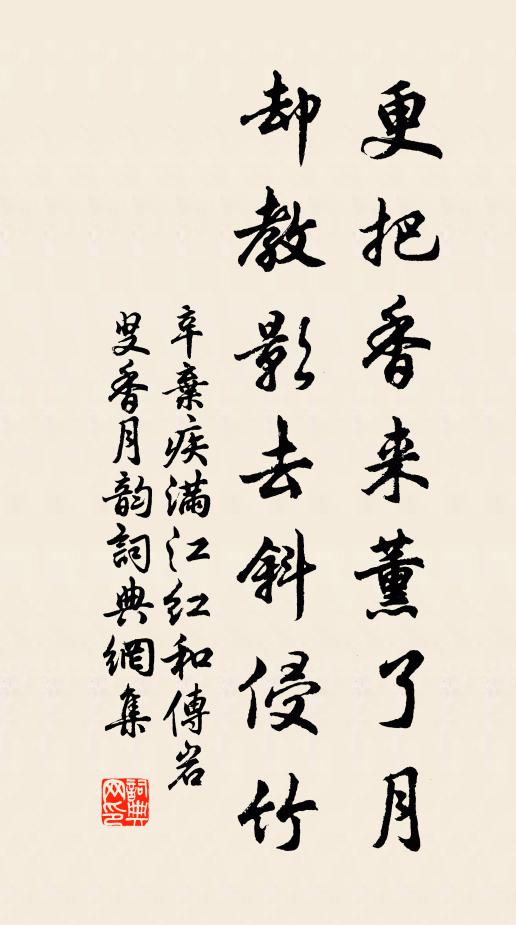 更把香来薰了月
却教影去斜侵竹
辛棄疾滿江紅和傅岩
叟香月韵詞典網集
詞典网印